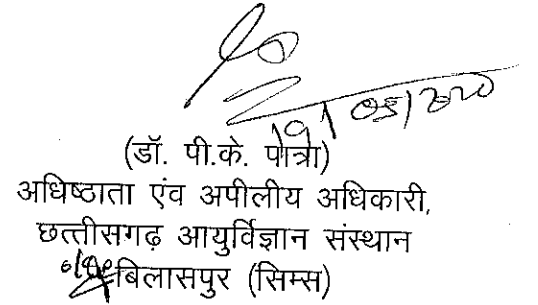 19/05/2020
(डॉ. पी.के. पात्रा)
अधिष्ठाता एंव अपीलीय अधिकारी,
छत्तीसगढ़ आयुर्विज्ञान संस्थान
बिलासपुर (सिम्स)